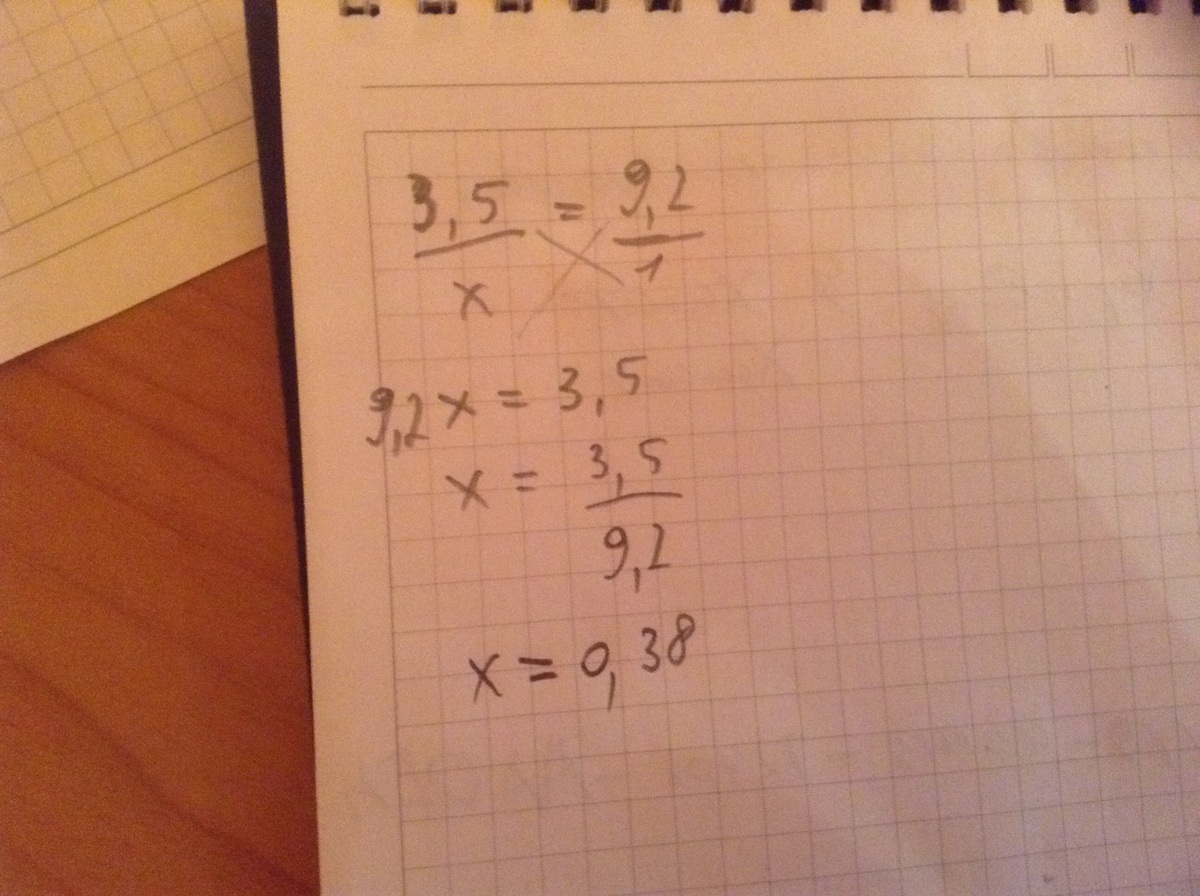 3,5/x = 9,2/1
9,2x = 3,5
x = 3,5/9,2
x = 0,38